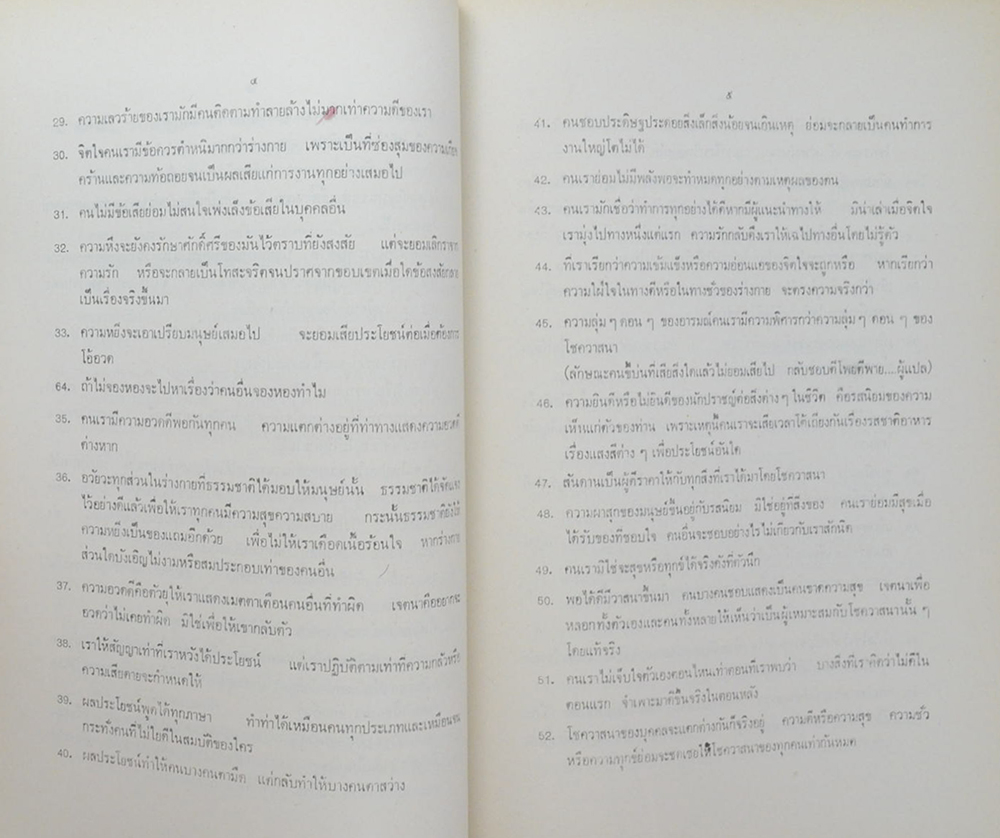 ๔
29. ความเลวร้ายของเรามักมีคนติดตามทำลายล้างไม่มากเท่าความดีของเรา
30. จิตใจคนเรามีข้อควรตำหนิมากกว่าร่างกาย เพราะเป็นที่ซ่องสุมของความเกียจ
คร้านและความท้อถอยจนเป็นผลเสียแก่การงานทุกอย่างเสมอไป
31. คนไม่มีข้อเสียย่อมไม่สนใจเพ่งเล็งข้อเสียในบุคคลอื่น
32. ความหึงจะยังคงรักษาศักดิ์ศรีของมันไว้ตราบที่ยังสงสัย แต่จะยอมเลิกราจาก
ความรัก หรือจะกลายเป็นโทสะจริตจนปราศจากขอบเขตเมื่อใดข้อสงสัยกลาย
เป็นเรื่องจริงขึ้นมา
33. ความหยิ่งจะเอาเปรียบมนุษย์เสมอไป จะยอมเสียประโยชน์ต่อเมื่อต้องการ
โอ้อวด
64. ถ้าไม่จองหองจะไปหาเรื่องว่าคนอื่นจองหองทำไม
35. คนเรามีความอวดดีพอกันทุกคน ความแตกต่างอยู่ที่ท่าทางแสดงความอวดดี
ต่างหาก
36. อวัยวะทุกส่วนในร่างกายที่ธรรมชาติได้มอบให้มนุษย์นั้น ธรรมชาติได้จัดแจง
ไว้อย่างดีแล้วเพื่อให้เราทุกคนมีความสุขความสบาย กระนั้นธรรมชาติยังให้
ความหยิ่งเป็นของแถมอีกด้วย เพื่อไม่ให้เราเดือดเนื้อร้อนใจ หากร่างกาย
ส่วนใดบังเอิญไม่งามหรือสมประกอบเท่าของคนอื่น
37. ความอวดดีคือตัวยุให้เราแสดงเมตตาเตือนคนอื่นที่ทำผิด เจตนาคืออยากจะ
อวดว่าไม่เคยทำผิด มิใช่เพื่อให้เขากลับตัว
38. เราให้สัญญาเท่าที่เราหวังได้ประโยชน์ แต่เราปฏิบัติตามเท่าที่ความกลัวหรือ
ความเสียดายจะกำหนดให้
39. ผลประโยชน์พูดได้ทุกภาษา ทำท่าได้เหมือนคนทุกประเภทและเหมือนจน
กระทั่งคนที่ไม่ไยดีในสมบัติของใคร
40. ผลประโยชน์ทำให้คนบางคนตามืด แต่กลับทำให้บางคนตาสว่าง
๕
41. คนชอบประดิษฐประดอยสิ่งเล็กสิ่งน้อยจนเกินเหตุ ย่อมจะกลายเป็นคนทำการ
งานใหญ่โตไม่ได้
42. คนเราย่อมไม่มีพลังพอจะทำหมดทุกอย่างตามเหตุผลของตน
43. คนเรามักเชื่อว่าทำการทุกอย่างได้ดีหากมีผู้แนะนำทางให้ มิน่าเล่าเมื่อจิตใจ
เรามุ่งไปทางหนึ่งแต่แรก ความรักกลับดึงเราให้เฉไปทางอื่นโดยไม่รู้ตัว
44. ที่เราเรียกว่าความเข้มแข็งหรือความอ่อนแอของจิตใจจะถูกหรือ หากเรียกว่า
ความใฝ่ใจในทางดีหรือในทางชั่วของร่างกาย จะตรงความจริงกว่า
45. ความลุ่ม ๆ ดอน ๆ ของอารมณ์คนเรามีความพิศดารกว่าความลุ่ม ๆ ดอน ๆ ของ
โชควาสนา
(ลักษณะคนขี้บ่นที่เสียสิ่งใดแล้วไม่ยอมเสียไป กลับชอบตีโพยตีพาย....ผู้แปล)
46. ความยินดีหรือไม่ยินดีของนักปราชญ์ต่อสิ่งต่าง ๆ ในชีวิต คือรสนิยมของความ
เห็นแก่ตัวของท่าน เพราะเหตุนี้คนเราจะเสียเวลาโต้เถียงกันเรื่องรสชาติอาหาร
เรื่องแสงสีต่าง ๆ เพื่อประโยชน์อันใด
47. สันดานเป็นผู้ตีราคาให้กับทุกสิ่งที่เราได้มาโดยโชควาสนา
48. ความผาสุกของมนุษย์ขึ้นอยู่กับรสนิยม มิใช่อยู่ที่สิ่งของ คนเราย่อมมีสุขเมื่อ
ได้รับของที่ชอบใจ คนอื่นจะชอบอย่างไรไม่เกี่ยวกับเราสักนิด
49. คนเรามิใช่จะสุขหรือทุกข์ได้จริงดังที่ตัวนึก
50. พอได้ดีมีวาสนาขึ้นมา คนบางคนชอบแสดงเป็นคนขาดความสุข เจตนาเพื่อ
หลอกทั้งตัวเองและคนทั้งหลายให้เห็นว่าเป็นผู้เหมาะสมกับโชควาสนานั้น ๆ
โดยแท้จริง
51. คนเราไม่เจ็บใจตัวเองตอนไหนเท่าตอนที่เราพบว่า บางสิ่งที่เราคิดว่าไม่ดีใน
ตอนแรก จำเพาะมาดีขึ้นจริงในตอนหลัง
52. โชควาสนาของบุคคลจะแตกต่างกันก็จริงอยู่ ความดีหรือความสุข ความชั่ว
หรือความทุกข์ย่อมจะชดเชยให้โชควาสนาของทุกคนเท่ากันหมด